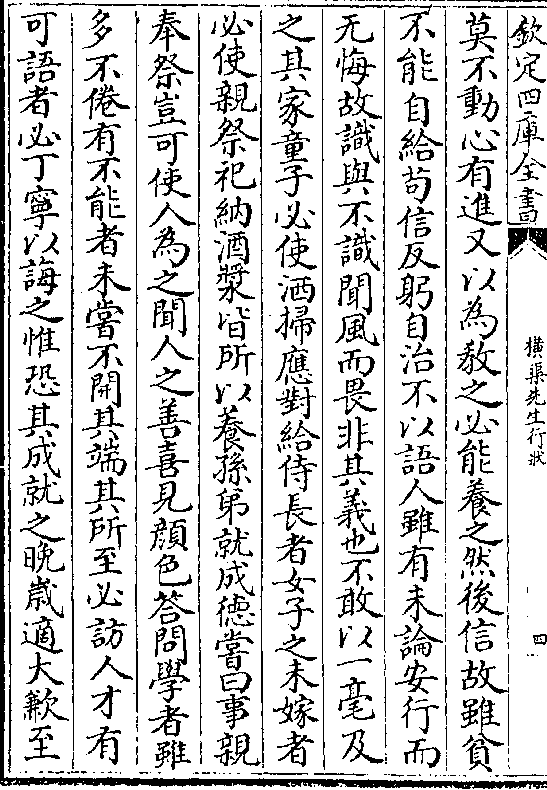 欽定四庫全書
橫渠先生行狀
四
莫不動心有進又以為教之必能養之然後信故雖貧
不能自給苟信反躬自治不以語人雖有未諭安行而
无悔故識與不識聞風而畏非其義也不敢以一毫及
之其家童子必使洒掃應對給侍長者女子之未嫁者
必使親祭祀納酒漿皆所以養孫弟就成德嘗曰事親
奉祭豈可使人為之聞人之善喜見顔色答問學者雖
多不倦有不能者未嘗不開其端其所至必訪人才有
可語者必丁寧以誨之惟恐其成就之晚歲適大歉至